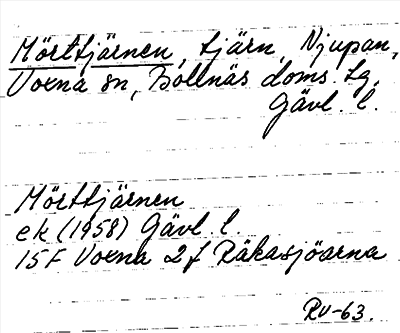 Mörttjärnen, tjärn, Njupan,
Voxna sn, Bollnäs doms. tg.
Gävl. l.
Mörttjärnen
ek (1958) Gävl. l.
15F Voxna 2f Räkasjöarna
RV-63.